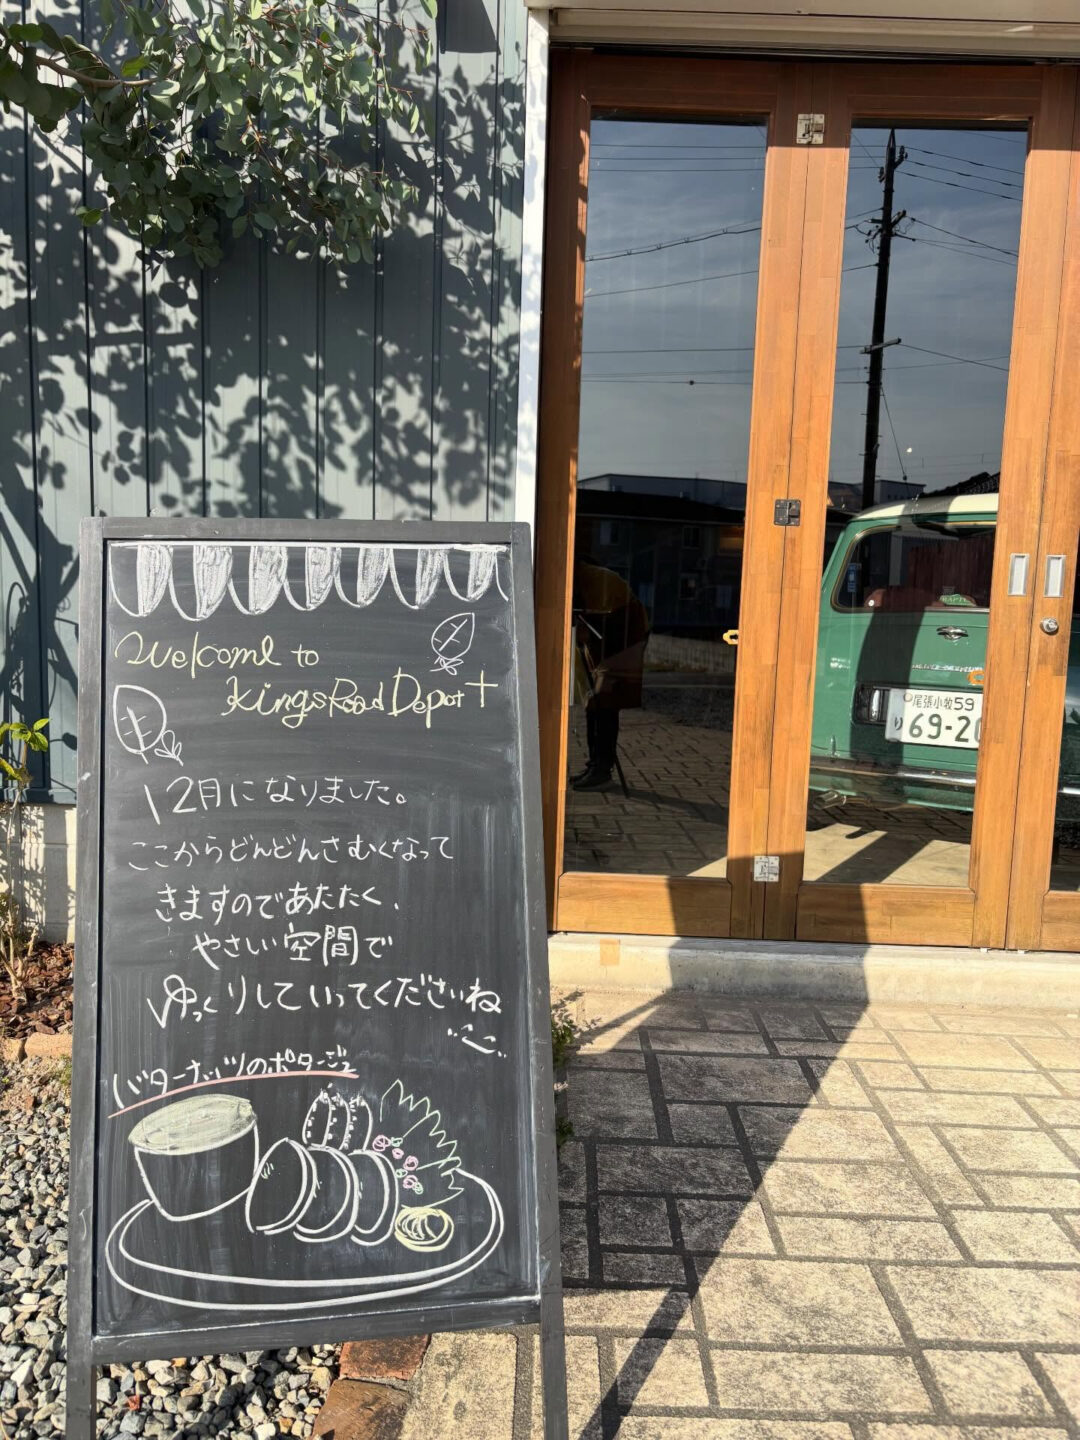 Welcome to
KingsRoad Depot
12月になりました。
ここからどんどんさむくなって
きますのであたたく、
やさしい空間で
ゆっくりしていってくださいね
バターナッツのポタージュ
尾張小牧59
り 69-20